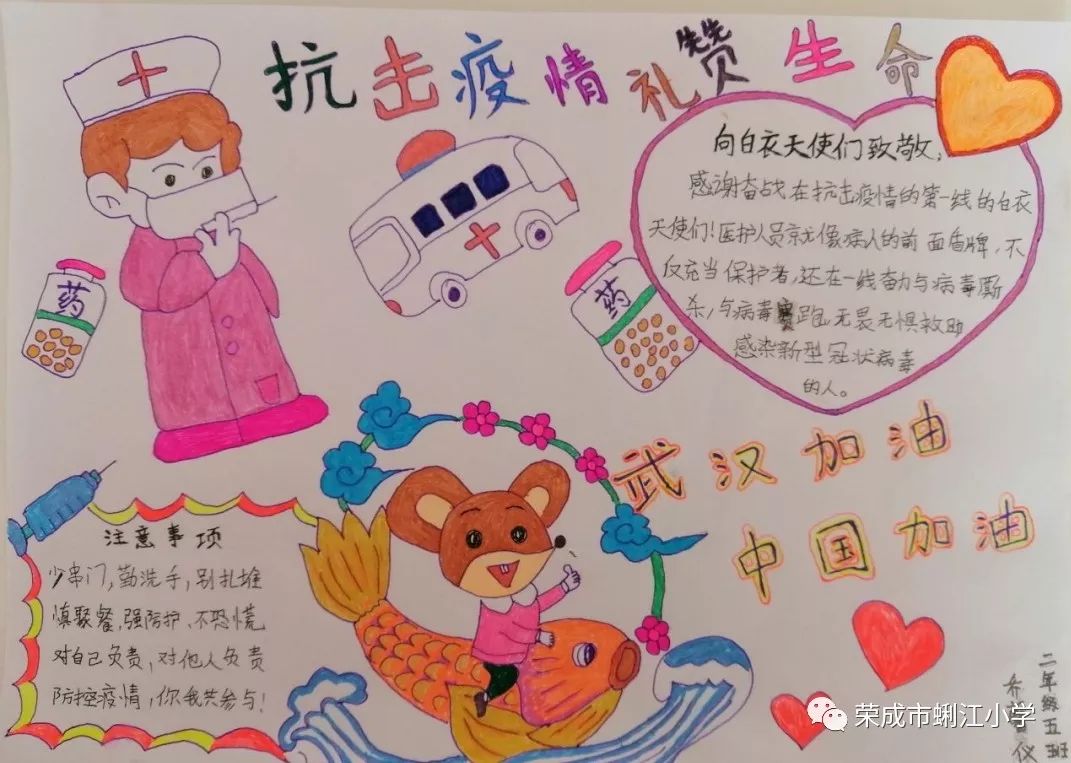 抗击疫情礼赞生命
药
药
向白衣天使们致敬,
感谢奋战在抗击疫情的第一线的白衣
天使们!医护人员就像病人的前面盾牌,不
仅充当保护者,还在一线奋力与病毒厮
杀,与病毒赛跑,无畏无惧救助
感染新型冠状病毒
的人。
武汉加油
中国加油
注意事项
少串门,勤洗手,别扎堆
慎聚餐,强防护,不恐慌
对自己负责,对他人负责
防控疫情,你我共参与!
二年级五班
荣成市蜊江小学